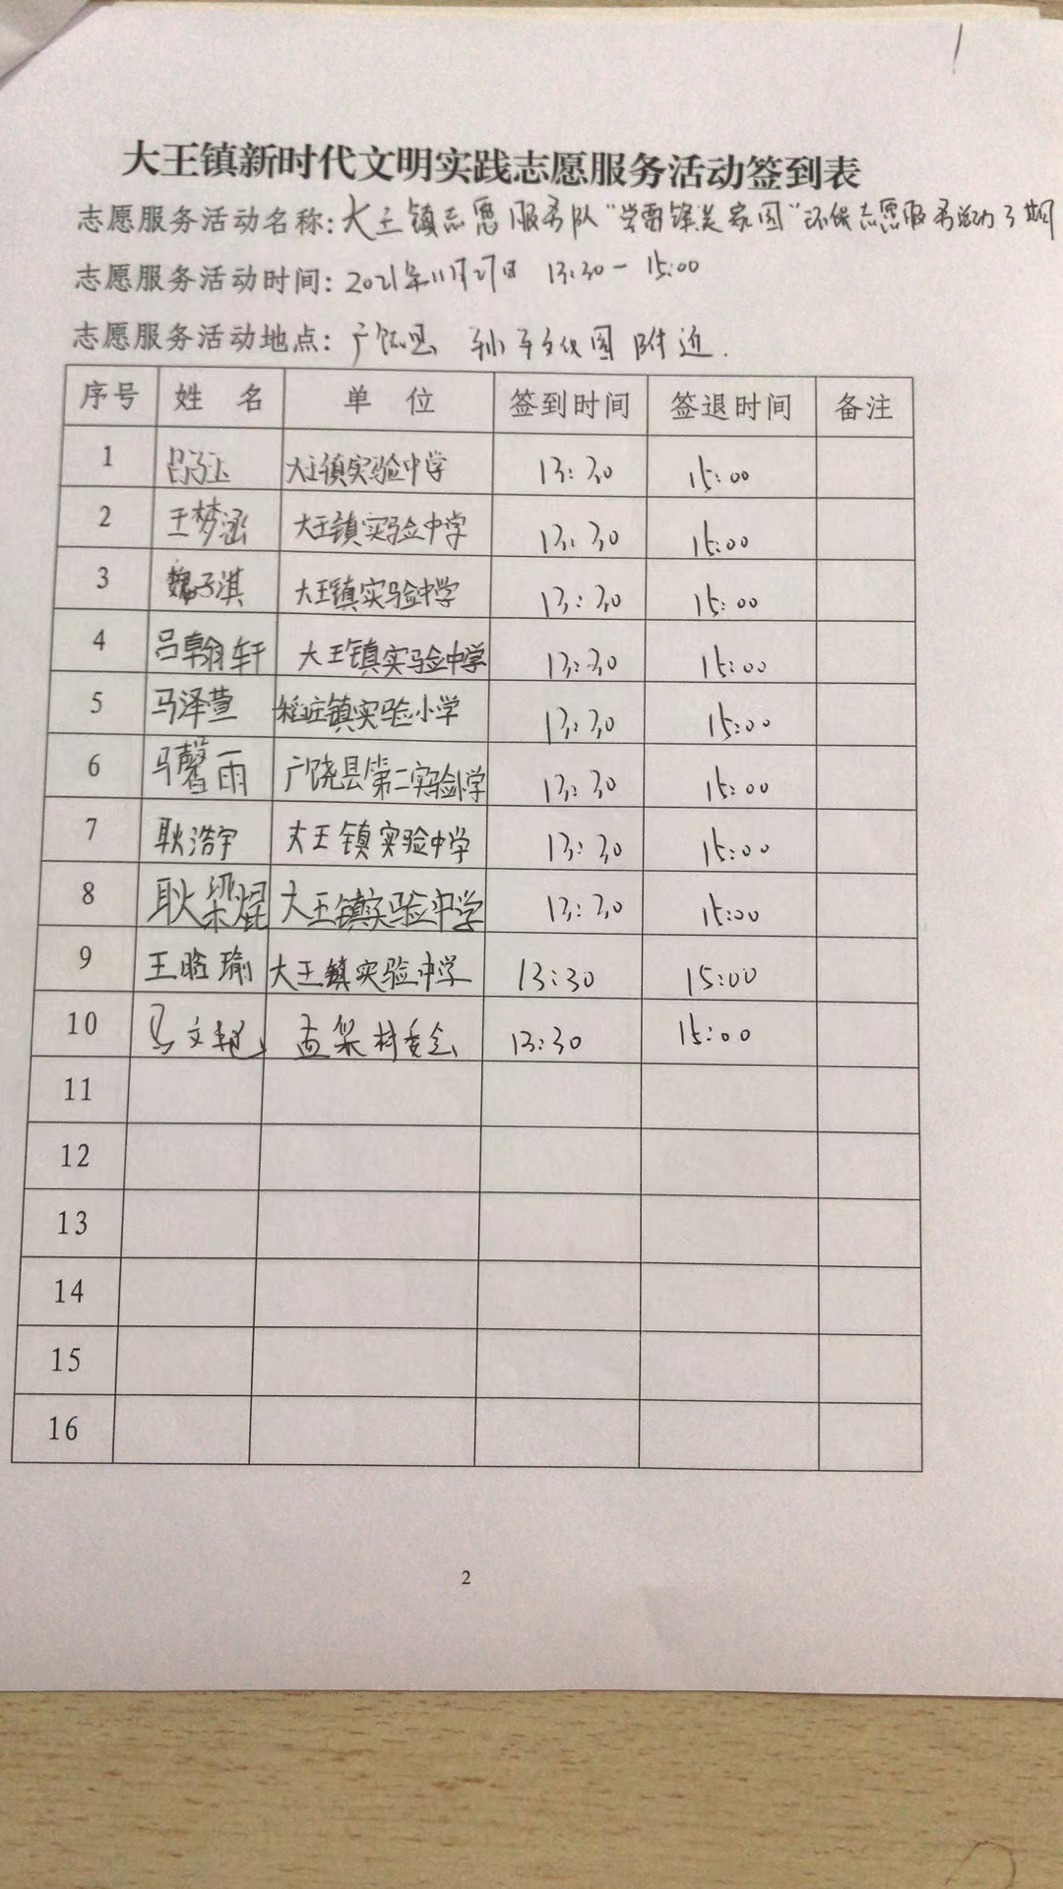 大王镇新时代文明实践志愿服务活动签到表
志愿服务活动名称:大王镇志愿服务队“学雷锋美家园”环保志愿服务活动3期
志愿服务活动时间:2021年11月27日 13:30-15:00
志愿服务活动地点:广饶县 孙子文化园附近.
序号 姓 名 单 位 签到时间 签退时间 备注
1 吕子玉 大王镇实验中学 13:30 15:00
2 王梦涵 大王镇实验中学 13:30 15:00
3 魏子淇 大王镇实验中学 13:30 15:00
4 吕翰轩 大王镇实验中学 13:30 15:00
5 马泽萱 稻庄镇实验小学 13:30 15:00
6 马馨雨 广饶县第二实验小学 13:30 15:00
7 耿浩宇 大王镇实验中学 13:30 15:00
8 耿梁焜 大王镇实验中学 13:30 15:00
9 王晗瑜 大王镇实验中学 13:30 15:00
10 马文 村委会 13:30 15:00
11
12
13
14
15
16
2